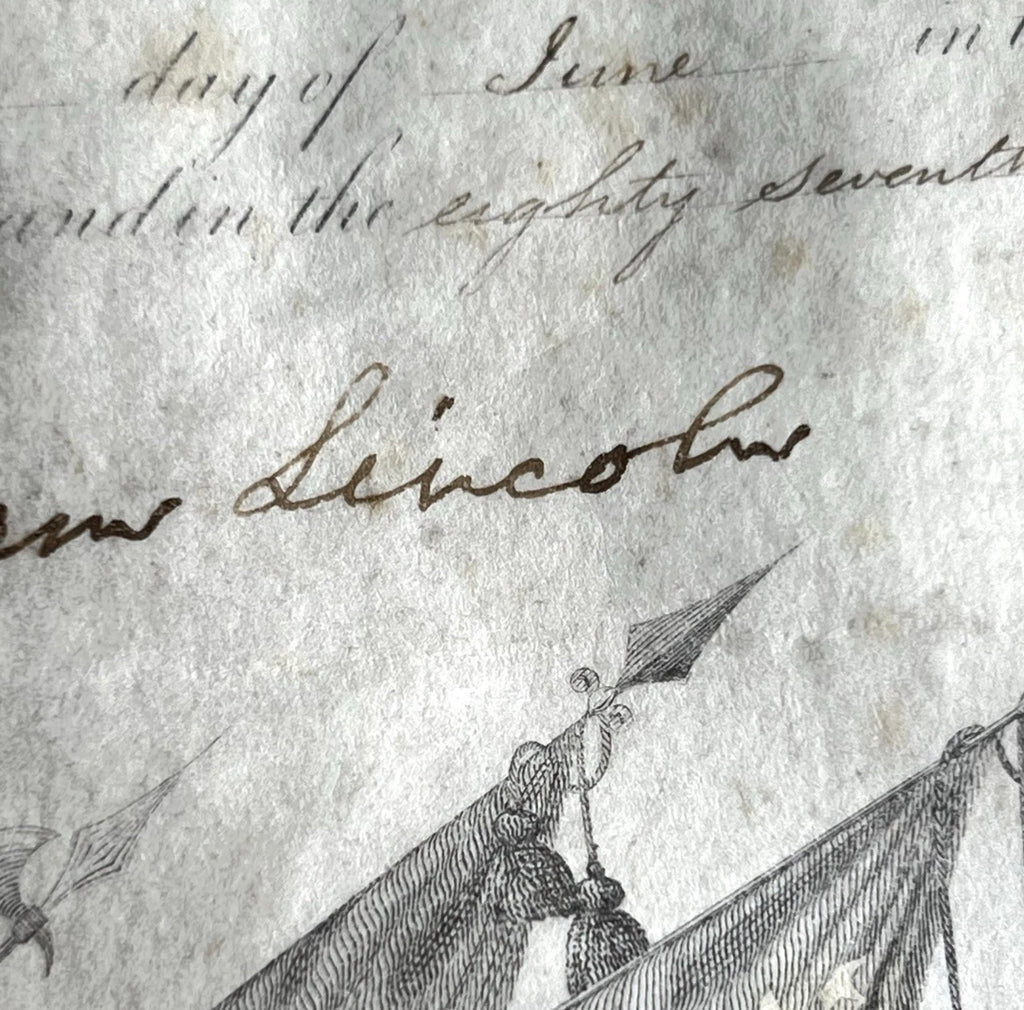 day of June in
and in the eighty seventh
Lincoln